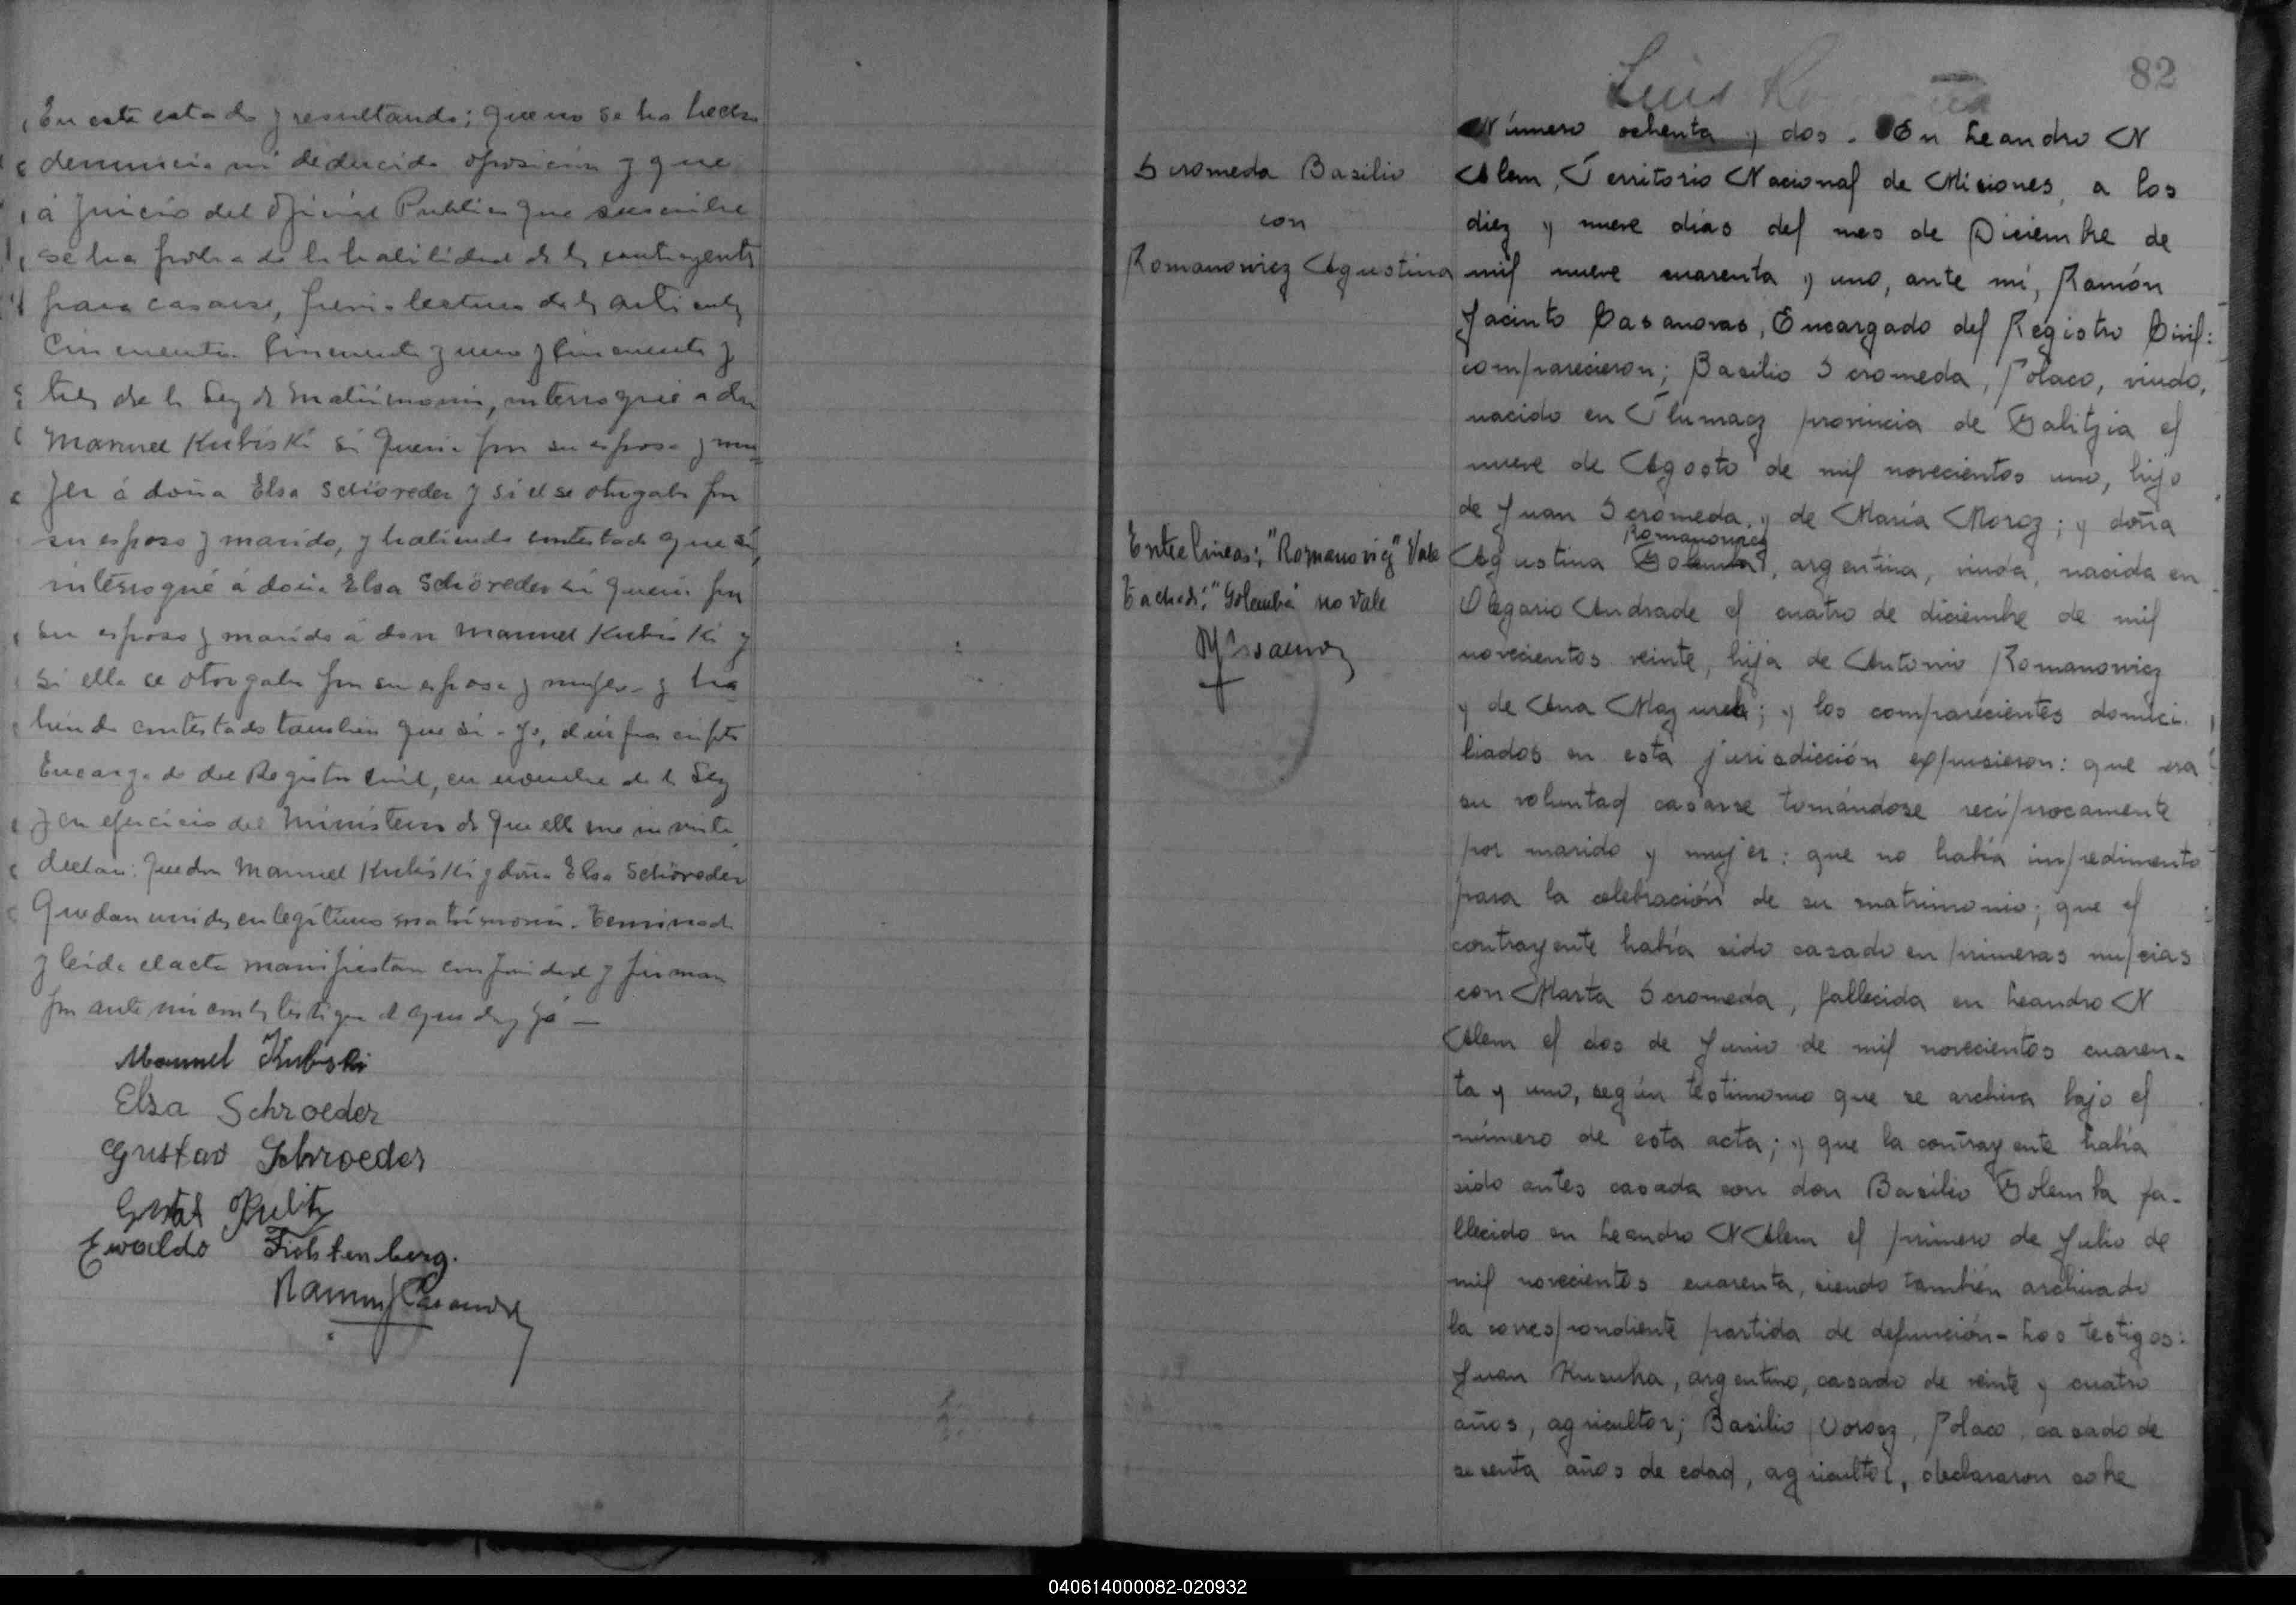 En este estado y resultando; que no se ha hecho
denuncia ni deducido oposición y que
á juicio del Oficial Publico que suscribe
se ha probado la habilidad de los contrayentes
para casarse, previa lectura de los articulos
Cincuenta. Cincuenta y uno y Cincuenta y
tres de la Ley de Matrimonio, interrogué a don
Manuel Kubiski si queria por su esposa y mu=
jer á doña Elsa Schöreder y si el se otorgaba por
su esposo y marido, y habiendo contestado que sí,
interrogué á doña Elsa Schöreder si queria por
su esposo y marido á don Manuel Kubiski y
si ella se otorgaba por su esposa y mujer y ha
biendo contestado tambien que si - Yo, el infrascripto
Encargado del Registro Civil, en nombre de la Ley
y en ejercicio del Ministerio de que ella me inviste,
declaro: que don Manuel Kubiski y doña Elsa Schöreder
Quedan unidos en legítimo matrimonio. Terminada
y leida el acta manifiestan conformidad y firman
por ante mi con los testigos de que doy fé —
Manuel Kubiski
Elsa Schroeder
Gustav Schroeder
Ewaldo Fichtenberg.
Ramón J Casanovas
82
Luis
Scromeda Basilio
con
Romanowicz Agustina
Entre lineas: "Romanovicz" Vale
Tachado: "Golemba" no vale
Número ochenta y dos. En Leandro N
Alem, Territorio Nacional de Misiones, a los
diez y nueve días del mes de Diciembre de
mil nueve cuarenta y uno, ante mí, Ramón
Jacinto Casanovas, Encargado del Registro Civil:
comparecieron; Basilio Scromeda, Polaco, viudo,
nacido en Tlumacz provincia de Galitzia el
nueve de Agosto de mil novecientos uno, hijo
de Juan Scromeda, y de María Moroz; y doña
Romanowicz
Agustina Golemba, argentina, viuda, nacida en
Olegario Andrade el cuatro de diciembre de mil
novecientos veinte, hija de Antonio Romanowicz
y de Ana Mazurek; y los comparecientes domici-
liados en esta jurisdicción expusieron: que era
su voluntad casarse tomándose recíprocamente
por marido y mujer: que no había impedimento
para la celebración de su matrimonio; que el
contrayente había sido casado en primeras nupcias
con Marta Scromeda, fallecida en Leandro N
Alem el dos de Junio de mil novecientos cuaren-
ta y uno, según testimonio que se archiva bajo el
número de esta acta; y que la contrayente había
sido antes casada con don Basilio Golemba fa-
llecido en Leandro N Alem el primero de Julio de
mil novecientos cuarenta, siendo también archivado
la correspondiente partida de defunción - Los testigos:
Juan Kusuka, argentino, casado de veinte y cuatro
años, agricultor; Basilio Worosz, Polaco, casado de
sesenta años de edad, agricultor, declararon sobre
040614000082-020932